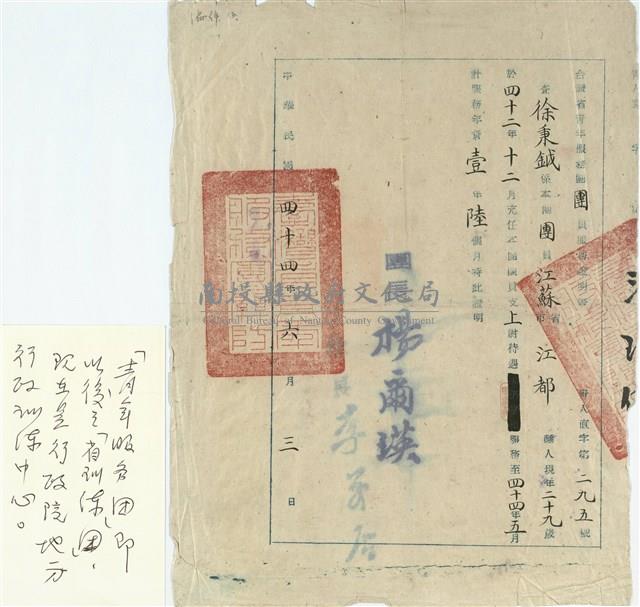 台灣省青年服務團團員服務證明書
計人直字第二九五號
查徐秉鉞係本團團員江蘇省市江都縣人現年二十九歲
於四十二年十二月充任本團團員支上尉待遇服務至四十四年五月
計服務年資壹年陸個月特此證明
團長楊爾瑛
中華民國四十四年六月三日
南投縣政府文化局
Cultural Bureau of Nantou County Government
「青年服務团即
以後之「省訓练团」,
現在是行政院地方
行政訓练中心。